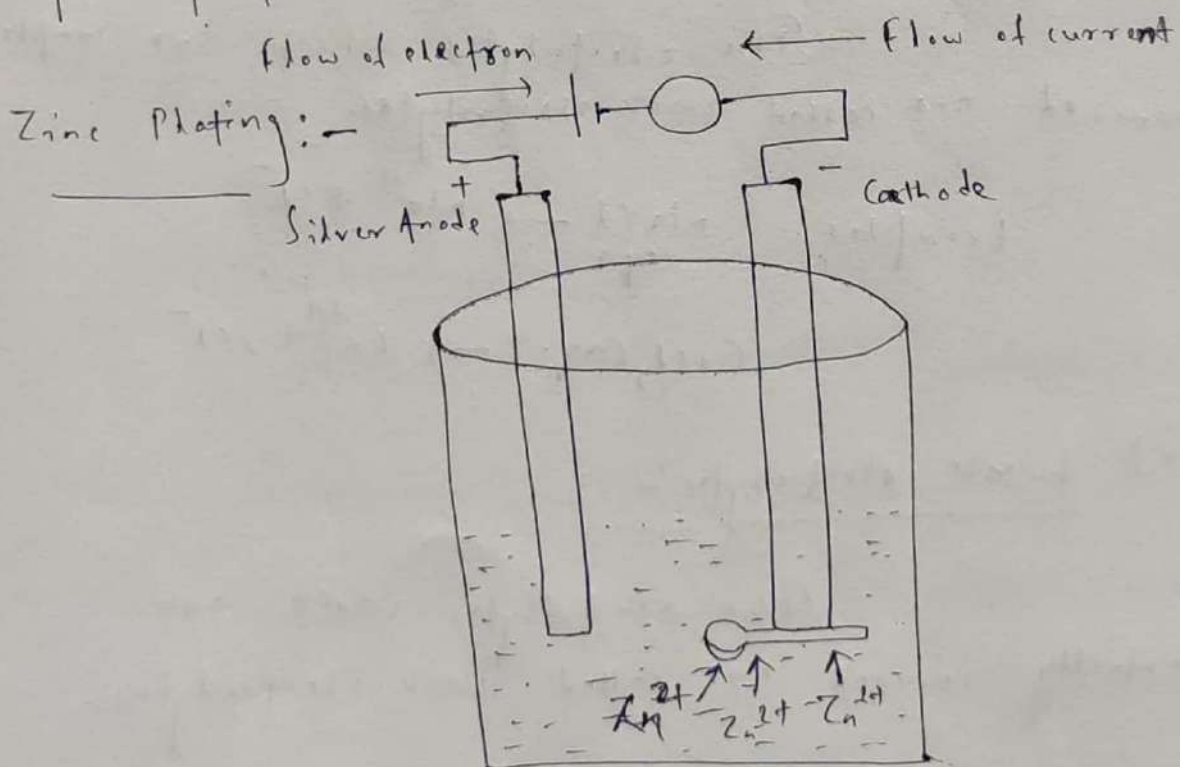 Flow of electron
Flow of current
Zinc Plating :-
+
-
Silver Anode
Cathode
Zn2+ Zn2+ Zn2+